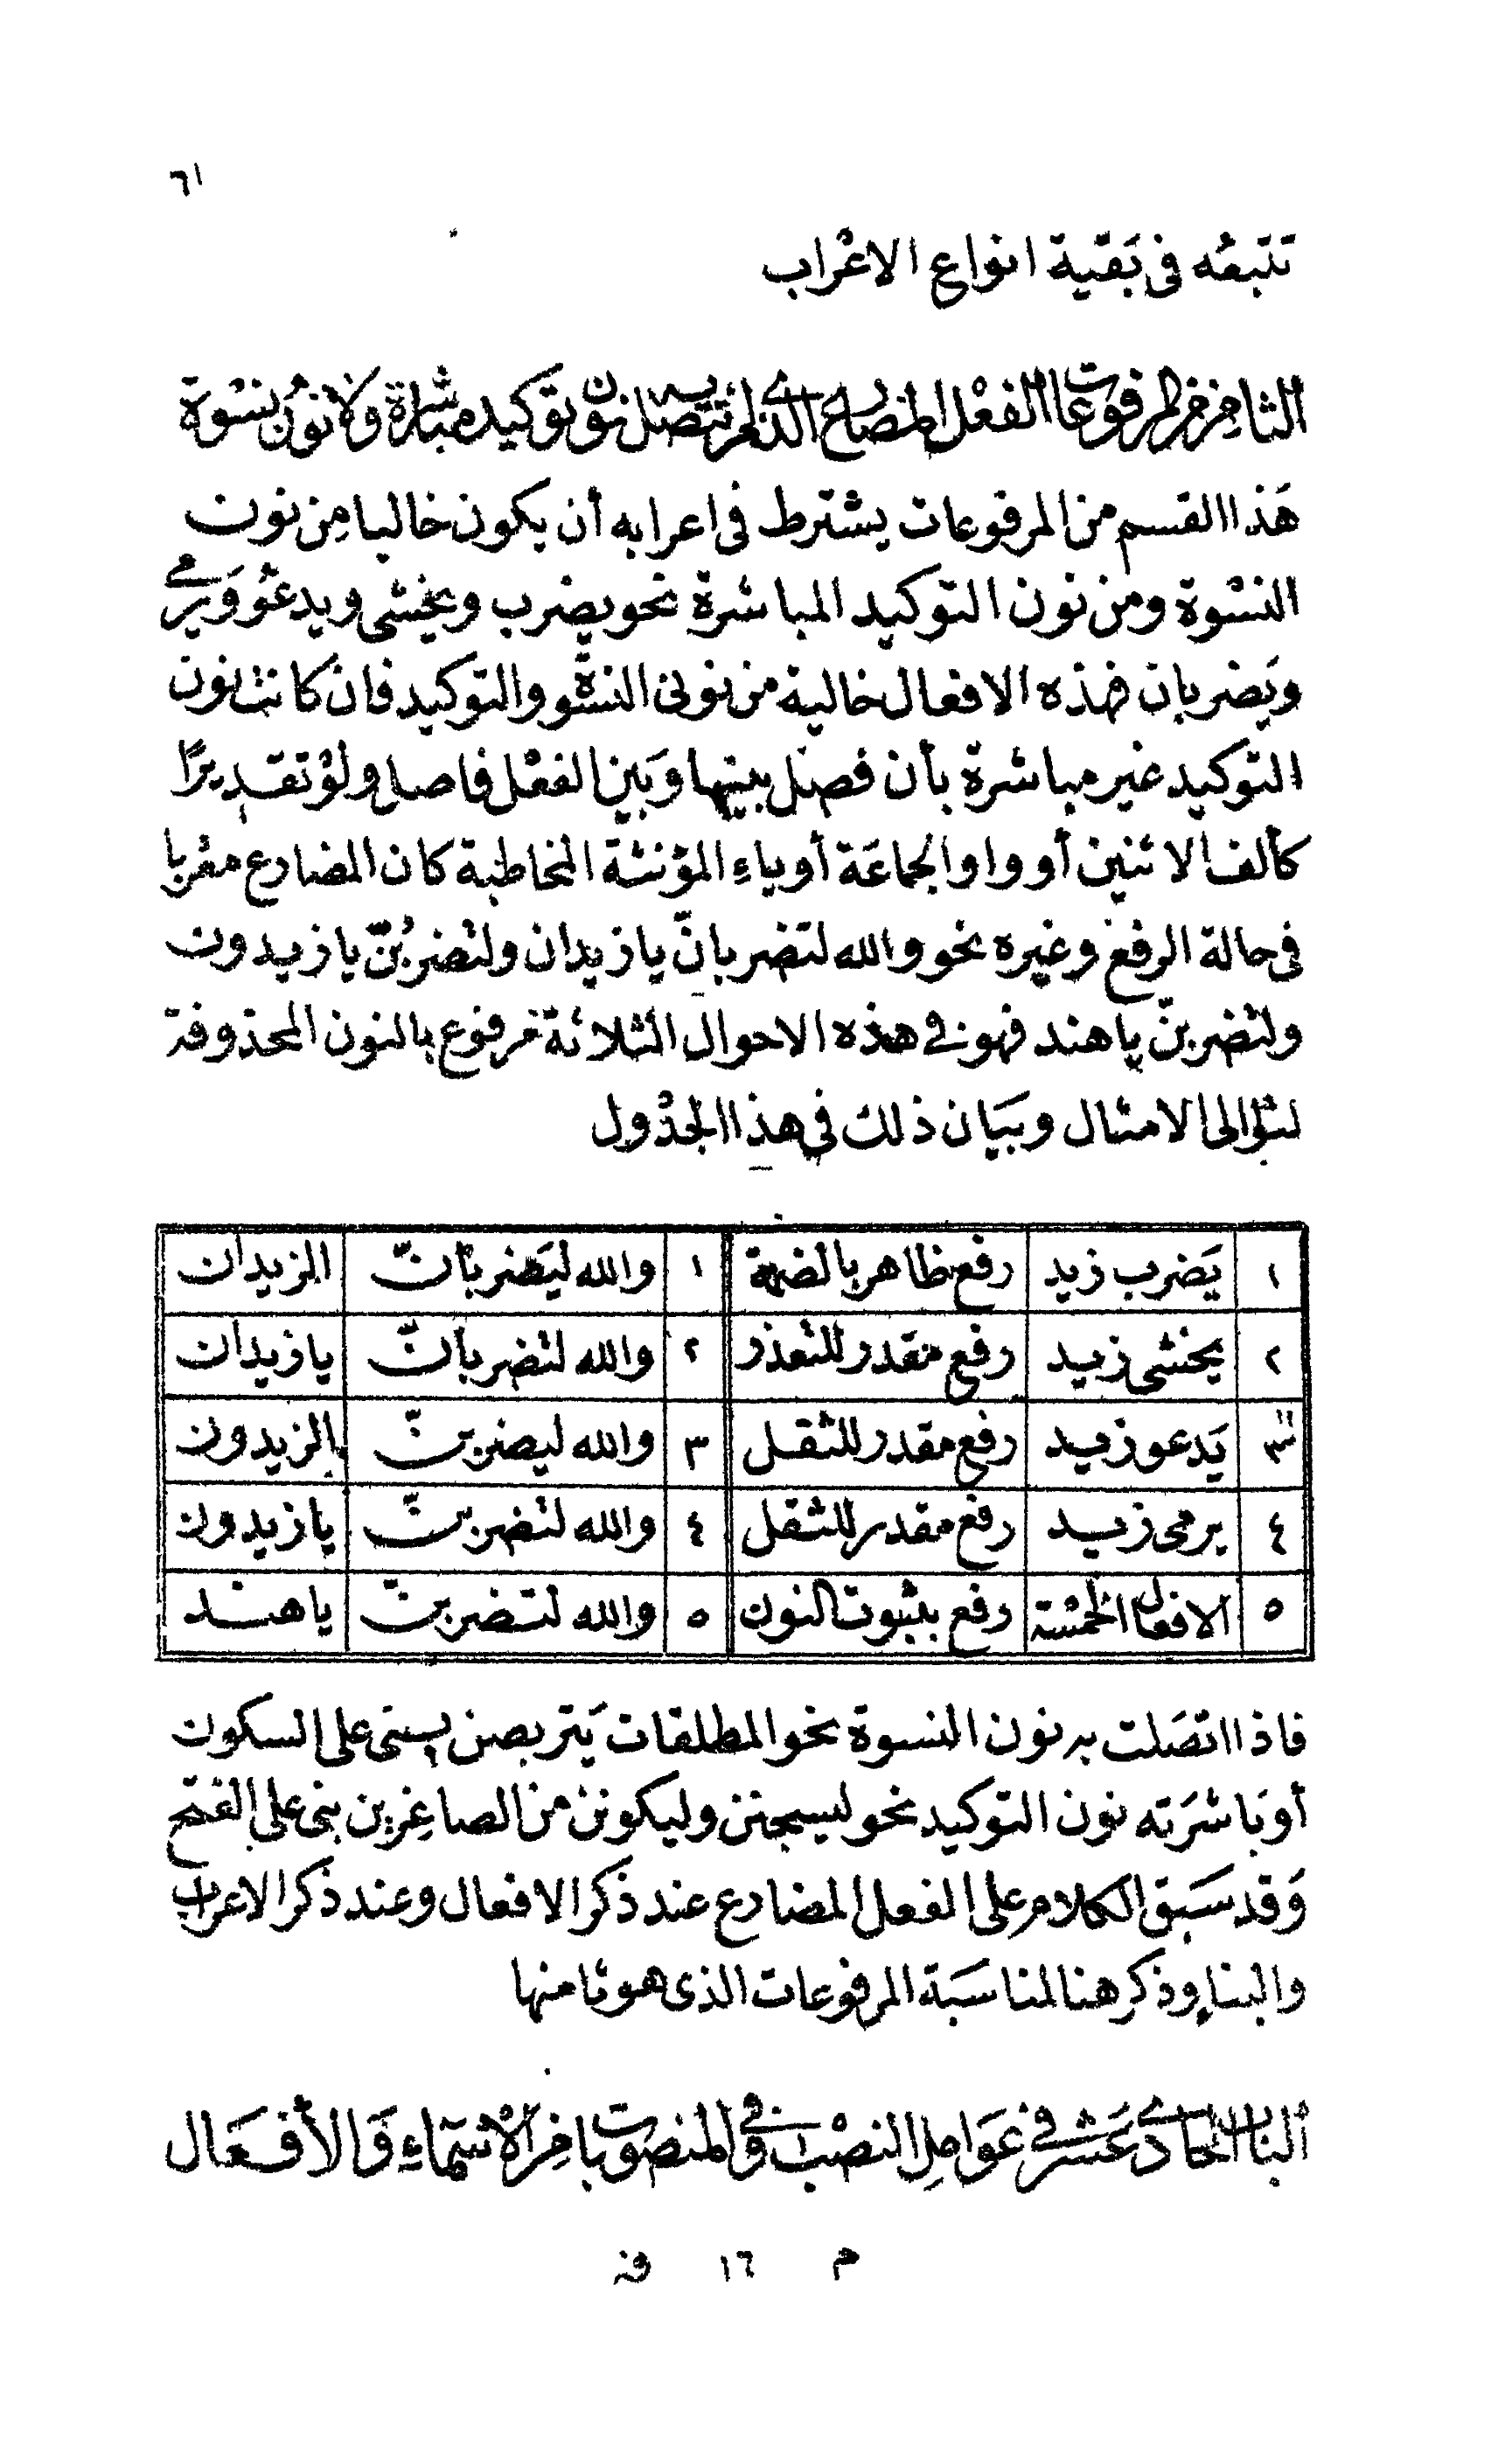 ٦١
تتبعُه فى بَقية انواع الاعْراب
الثامن من المرفوعات الفعْل المضارع الذى لم تتصل به نون توكيد مباشرة ولا نونُ نسْوة
هَذا القسم من المرفوعات يشترط فى اعرابه أن يكون خاليا مِن نون
النسْوة ومن نون التوكيد المباشرة نحو يضرب ويخشى ويدعُو وَيرمى
ويَضربان فهذه الافعال خالية من نونى النسْوة والتوكيد فان كانت نون
التوكيد غير مباشرة بأن فصل بينها وَبين الفعْل فاصل ولوْ تقديرًا
كألف الاثنين أو واو الجماعَة أو ياءِ المؤنثة المخاطبة كان المضارع معْربا
فى حالة الرفع وغيره نحو والله لتضربانّ يا زيدان ولتضربُنّ يا زيدون
ولتضربنّ يا هند فهو فى هذه الاحوال الثلاثة مرفوع بالنون المحذوفة
لتوالى الامثال وبَيَان ذلك فى هذا الجدْول
١ يَضرب زيد رفع ظاهر بالضمة ١ والله ليَضربانّ الزيدان
٢ يخشى زيد رفع مقدر للتعذر ٢ والله لتضربانّ يا زيدان
٣ يَدعو زيد رفع مقدر للثقل ٣ والله ليضربنّ الزيدون
٤ يرمى زيد رفع مقدر للثقل ٤ والله لتضربنّ يا زيدون
٥ الافعال الخمسْة رفع بثبوت النون ٥ والله لتضربنّ يا هند
فاذا اتصَلت به نون النسوة نحو المطلقات يَتربصن يبنى على السكون
أو بَاشرَته نون التوكيد نحو ليسجنن وليكونن من الصاغِرين بنى على الفتح
وَقد سَبق الكلام على الفعل المضارع عند ذكر الافعال وعند ذكر الاعراب
والبناءِ وذكر هنا لمناسَبة المرفوعات الذى هو ثامنها
البَابُ الحَادى عَشر فى عَوامِل النصْب وَفى المنصوبات مِن الأسْمَاءِ وَالأفعَال
م ١٦ فة